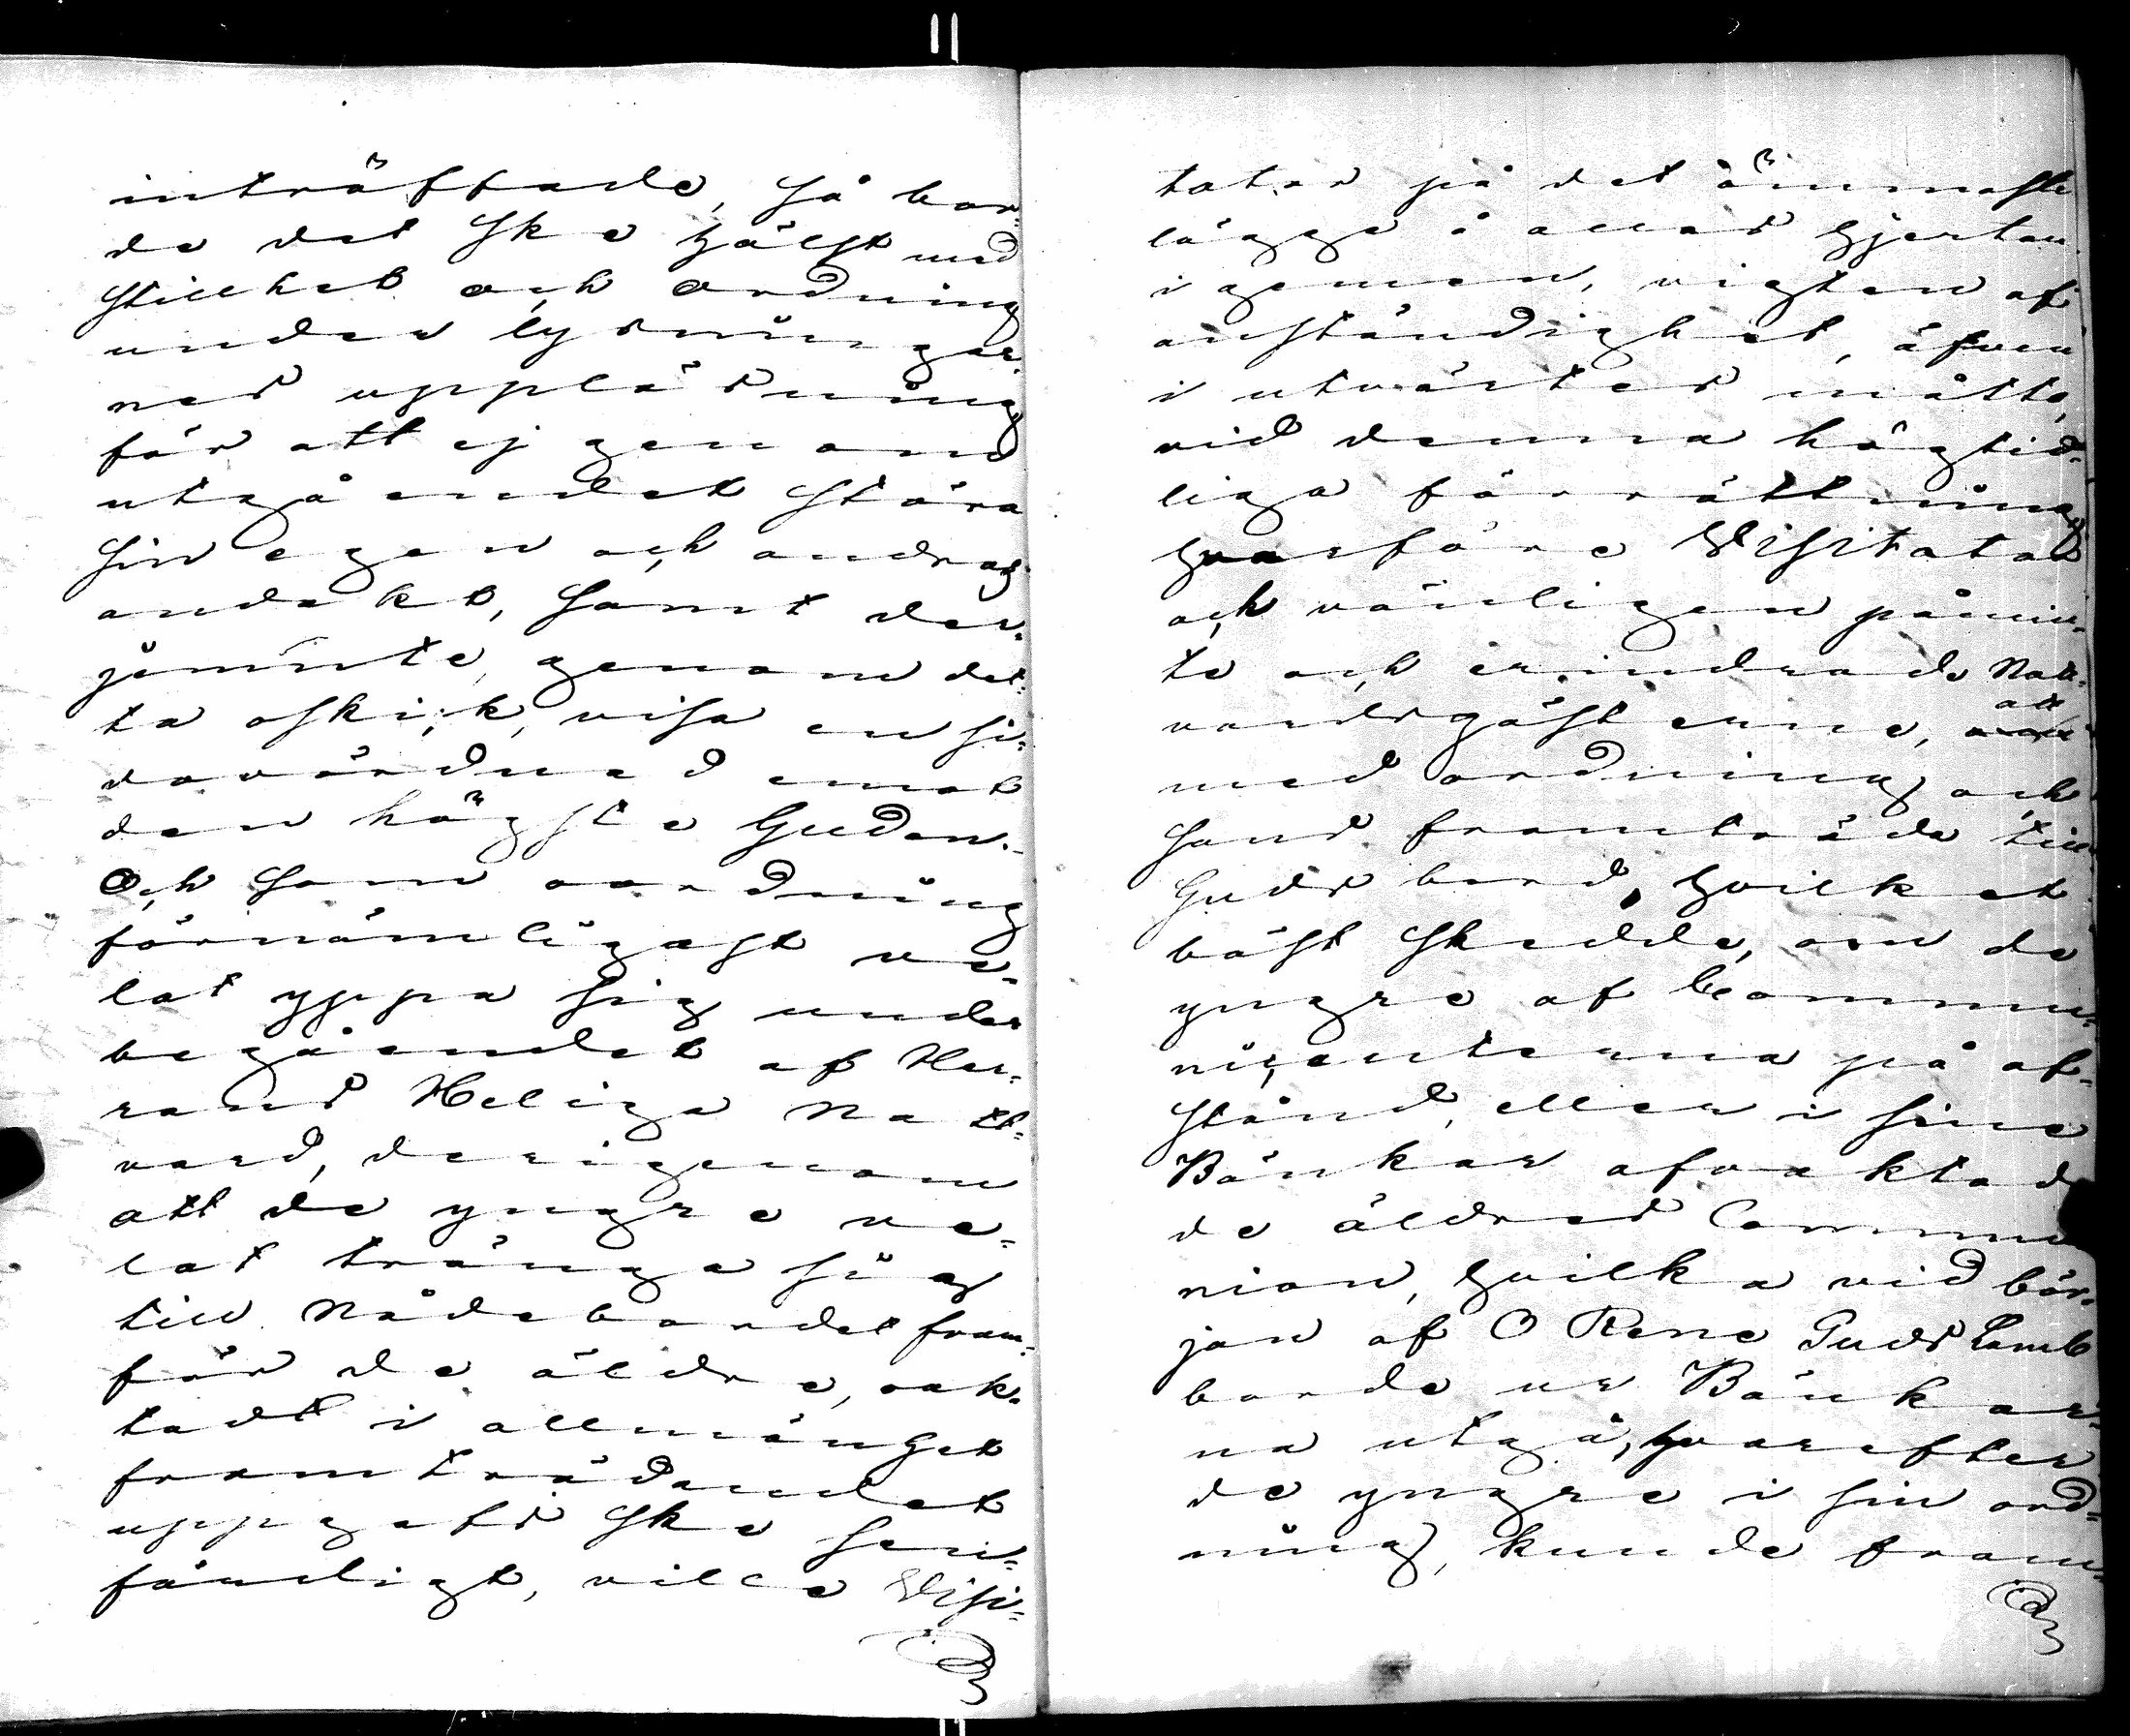 inträffade, så bor¬
de det ske hälst med
stillhet och ordning
under lysningar¬
nes uppläsning
för att ej genom
utgåendet störa
sin egen och andras
andakt, samt der¬
jemnte, genom det¬
ta oskick, visa en si¬
dovördnad emot
den högste Guden.
Och som oordning
förnämligast ve¬
lat yppa sig under
begåendet af Her¬
rans Heliga Natt¬
vard, derigenom
att de yngre ve¬
lat tränga sig
till Nådebordet fram¬
för de äldre, och
tadt i allmänhet
framträdandet
uppgets ske sen¬
färdligt, ville Visi¬
tator på det ömmaste
lägga å allas hjertan
i gemen, vigten af
anständighet, äfven
i utvärtes måtto,
vid denna högtid¬
liga förrättning
hvarföre Visitator
och vänligen påmin¬
te och erindrade Natt¬
vardsgästerne, att
med ordning och
sans framträda till
Guds bord, hvilket
bäst skedde, om de
yngre af Commu¬
nicanterna på af¬
stånd, eller i sine
Bänkar afvaktade
de äldres Commu
nion, hvilka vid bör¬
jan af O Rene Guds Lamb
borde ur Bänkar¬
na utgå, hvarefter
de yngre i sin ord¬
ning, kunde fram¬